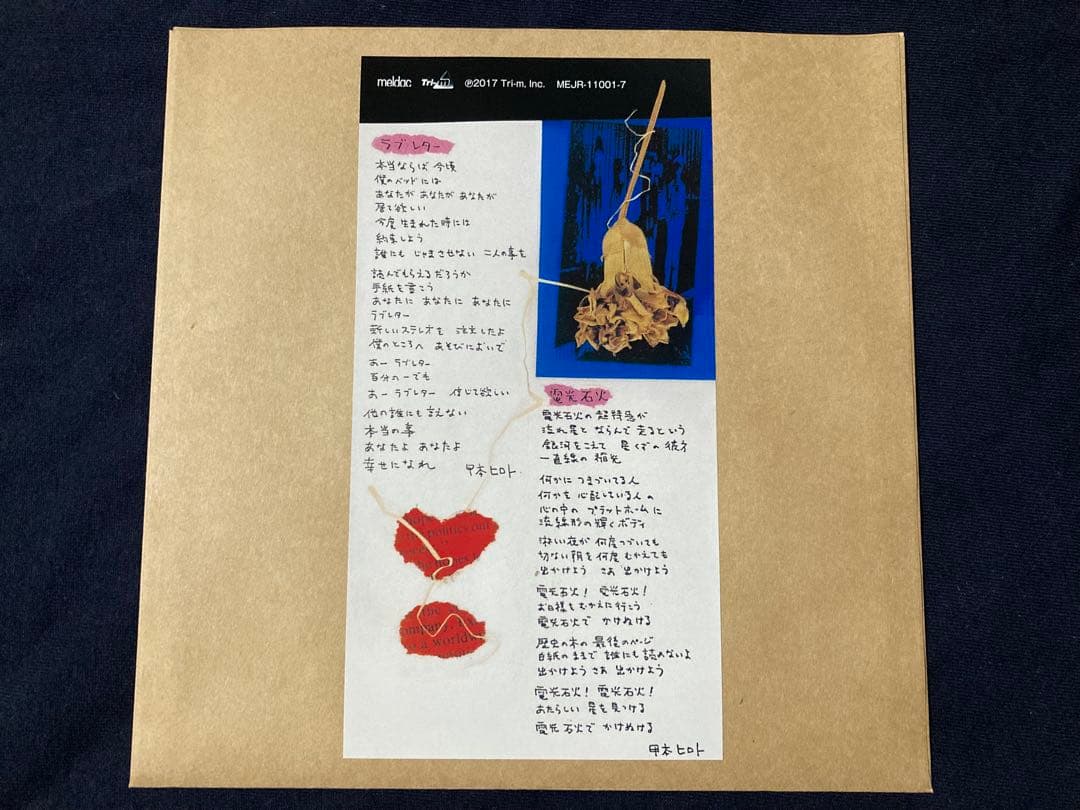 meldac Tri-m ℗2017 Tri-m, Inc. MEJR-11001-7
ラブレター
本当ならば 今頃
僕のベッドには
あなたが あなたが あなたが
居て欲しい
今度生まれた時には
約束しよう
誰にも じゃまさせない 二人の事を
読んでもらえるだろうか
手紙を書こう
あなたに あなたに あなたに
ラブレター
新しいステレオを 注文したよ
僕のところへ あそびにおいで
あー ラブレター
百分の一でも
あー ラブレター 信じて欲しい
他の誰にも言えない
本当の事
あなたよ あなたよ
幸せになれ
甲本ヒロト
hope
politics out
the
ompany
a world
電光石火
電光石火の超特急が
流れ星と ならんで 走るという
銀河をこえて 星くずの彼方
一直線の 稲光
何かに つまづいてる人
何かを 心配している人の
心の中の プラットホームに
流線形の輝くボディ
淋しい夜が 何度つづいても
切ない朝を何度 むかえても
出かけよう さあ 出かけよう
電光石火! 電光石火!
お日様をむかえに行こう
電光石火で かけぬける
歴史の本の 最後のページ
白紙のままで 誰にも読めないよ
出かけよう さあ 出かけよう
電光石火! 電光石火!
あたらしい 星を見つける
電光石火で かけぬける
甲本ヒロト